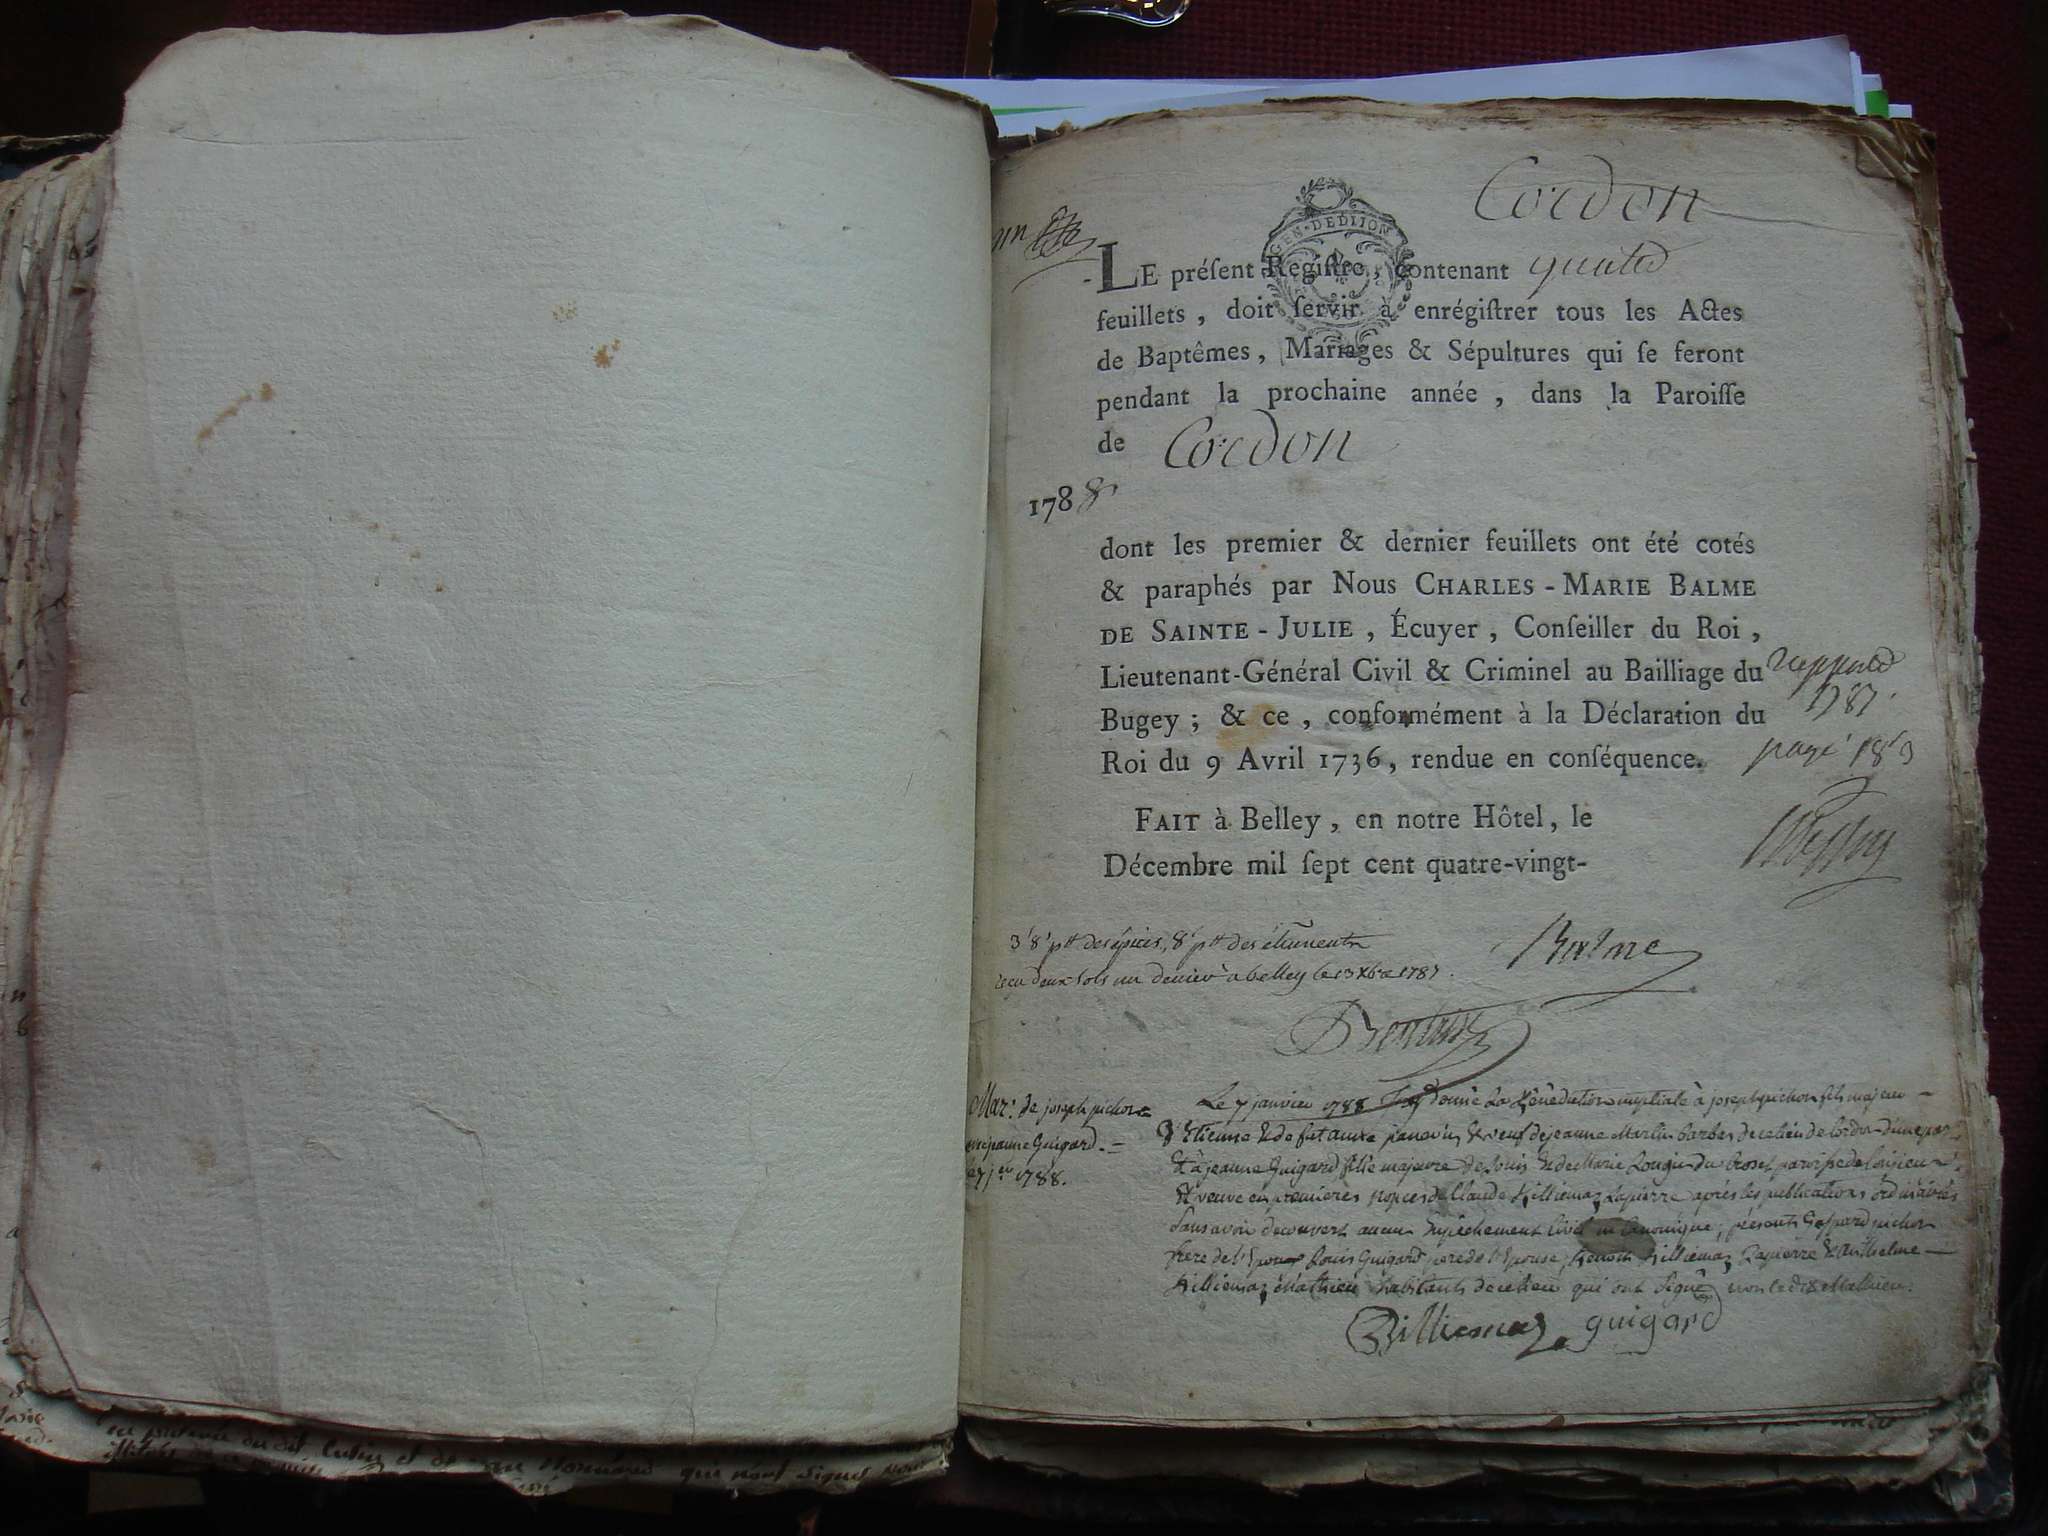 Cordon
GEN·DEDIJON
LE préſent Regiſtre, contenant quatre
feuillets, doit ſervir à enrégiſtrer tous les Actes
de Baptêmes, Mariages & Sépultures qui ſe feront
pendant la prochaine année, dans la Paroiſſe
de Cordon
1788
dont les premier & dernier feuillets ont été cotés
& paraphés par Nous CHARLES-MARIE BALME
DE SAINTE-JULIE, Écuyer, Conſeiller du Roi,
Lieutenant-Général Civil & Criminel au Bailliage du
Bugey; & ce, conformément à la Déclaration du
Roi du 9 Avril 1736, rendue en conſéquence.
1787
page
FAIT à Belley, en notre Hôtel, le
Décembre mil ſept cent quatre-vingt-
Balme
reçu deux sols un denier a belley le 13 Xbre 1787.
Mar. de joseph pichon
jeanne Guigard
le 7 jer 1788.
Le 7 janvier 1788 j'ay donné La Bénédiction nuptiale à joseph pichon fils majeur
d'Etienne & de & veuf de jeanne Martin barbe de ce lieu de Cordon d'une part
& à jeanne Guigard fille majeure de Louis & de Marie paroisse de
& veuve en premières nopces de Claude Billiemaz Lapierre après les publications ordinaires
sans avoir decouvert aucun Empêchement Civil ni Canonique; présents Gaspard pichon
frere de l'Epoux Louis Guigard pere de l'Epouse, Benoit Billiemaz Lapierre & Anthelme
Billiemaz Mathieu habitants de ce lieu qui ont signé non ledit Mathieu.
Billiemaz guigard